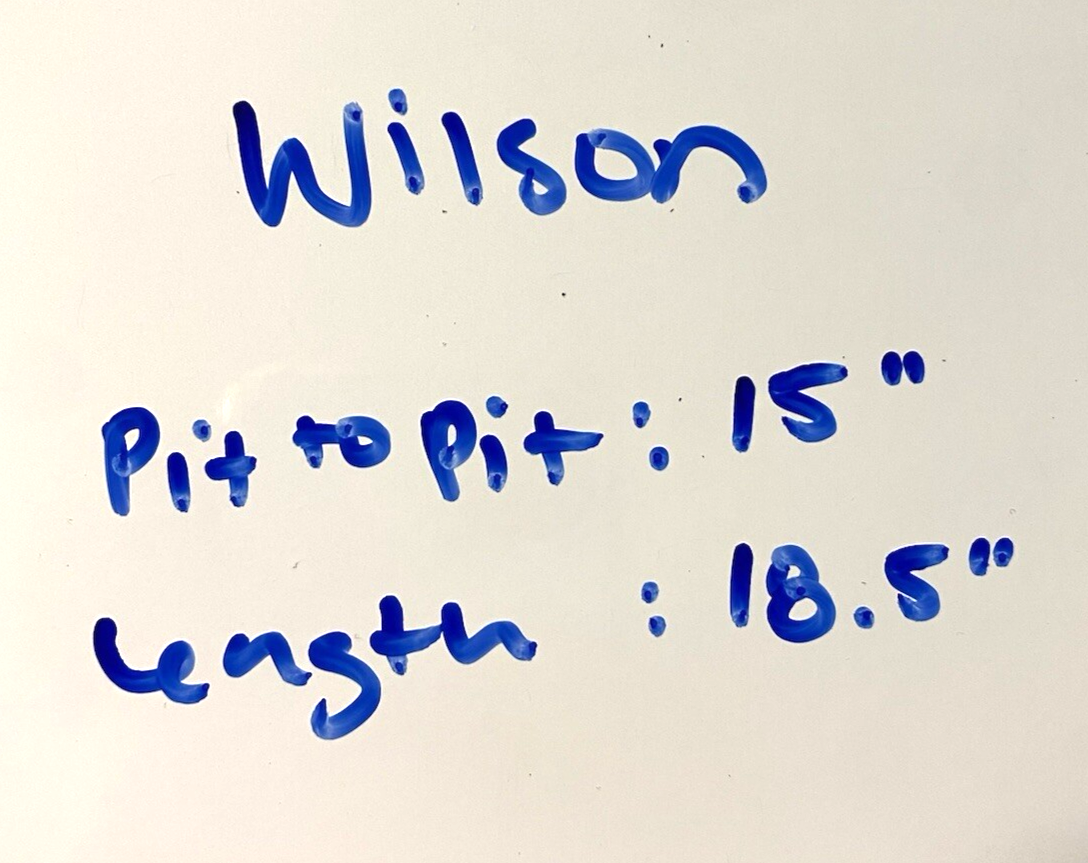 Wilson
Pit to Pit : 15"
Length : 18.5"